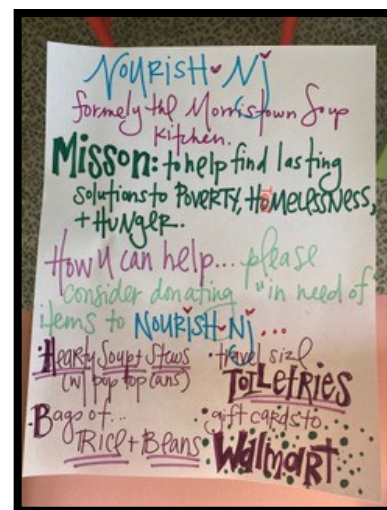 NOURISH♥NJ
formely the Morristown Soup
Kitchen.
Misson: to help find lasting
solutions to POVERTY, HOMELESSNESS,
+ HUNGER.
How U can help... please
consider donating "in need of
items to NOURISH♥NJ...
• Hearty Soups + Stews
(w/ pop top cans)
• Bags of...
RICE + BEANS
• travel size
TOILETRIES
• gift cards to
Walmart